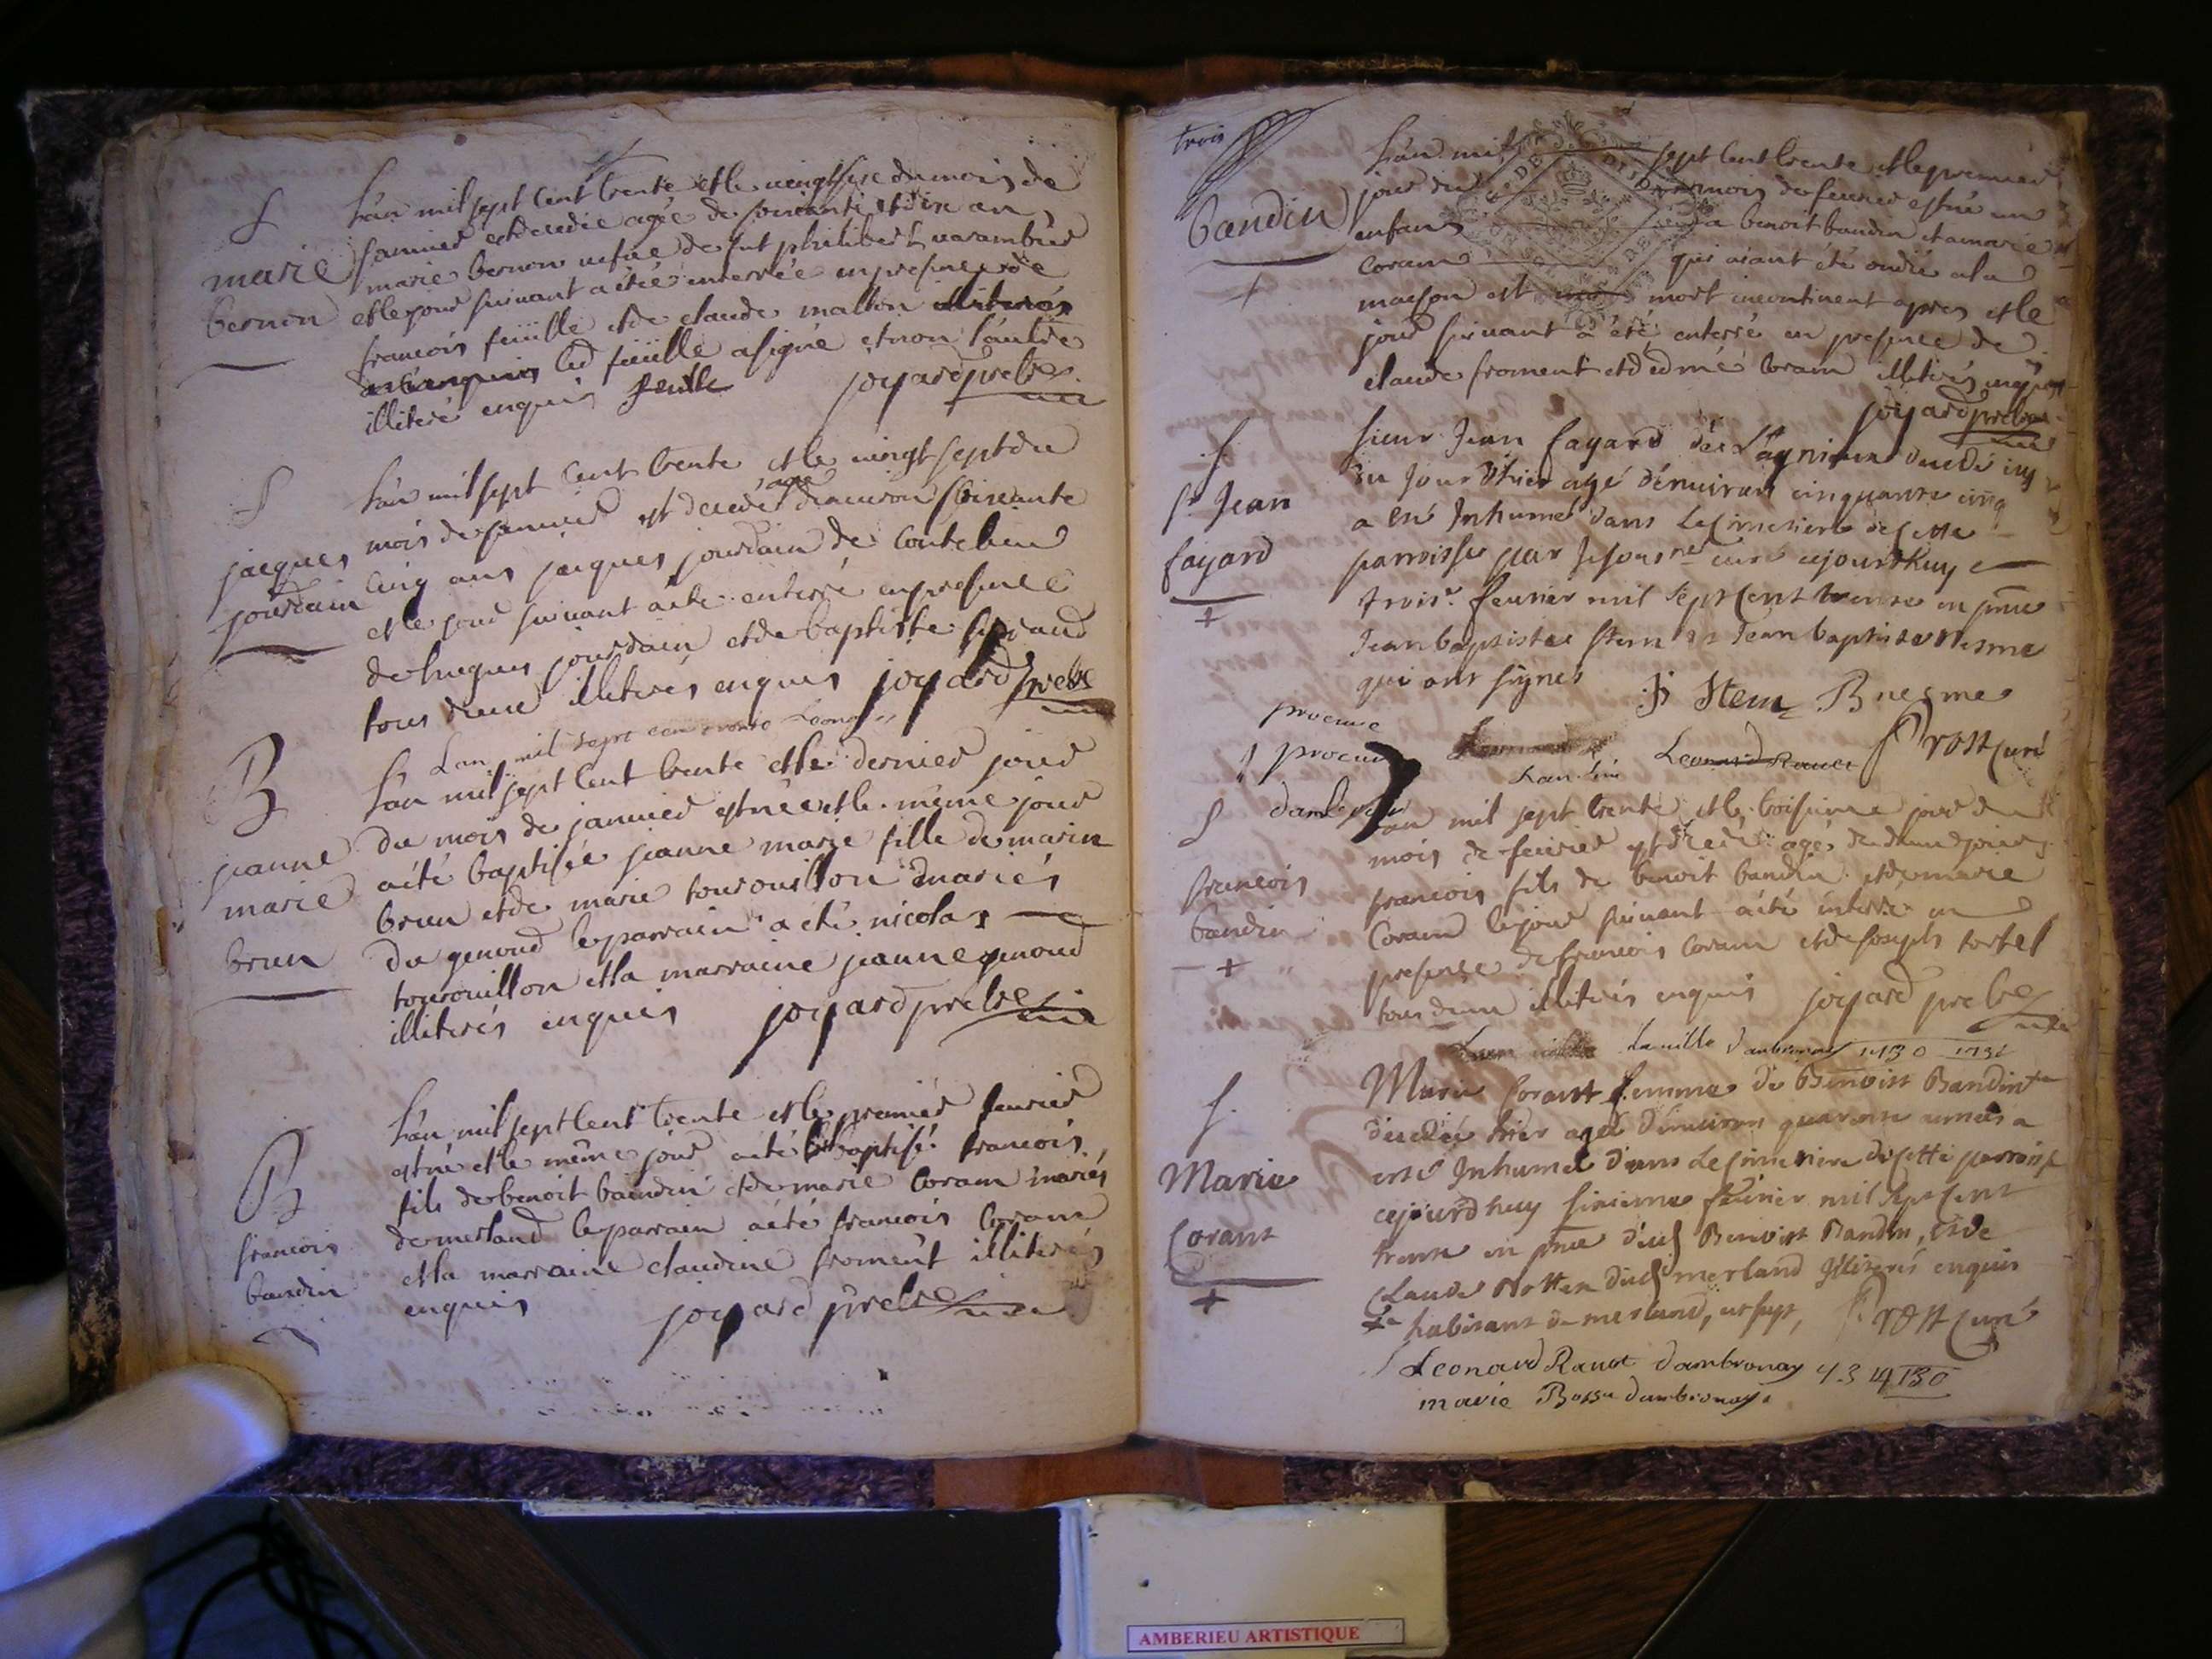 S
marie
bernon
L'an mil sept cent trente et le vingt sixe du mois de
janvier est decedée agée de soixante et dix ans
marie bernon vefve de fut philibert varambier
et le jour suivant a étée enterrée en presence de
francois feuille et de claude mallon illiterés
enquis led feuille a signé et non l'autre
illiteré enquis feulle joyard prebre
S
jacques
jourdain
L'an mil sept cent trente et le vingt sept du
mois de janvier est decedé agé d'environ soixante
cinq ans jacques jourdain de Coutelieu
et le jour suivant a été enterré en presence
de hugues jourdain et de baptiste
tous deux illiterés enquis joyard prebre
Lan mil sept cen trante Leonar
B
jeanne
marie
brun
L'an mil sept cent trente et le dernier jour
du mois de janvier est née et le même jour
a été baptisée jeanne marie fille de marin
brun et de marie tourouillon mariés
du genoud le parrain a été nicolas
tourouillon et la marraine jeanne genoud
illiterés enquis joyard prebre
B
francois
baudin
L'an mil sept cent trente et le premier fevrier
est né et le même jour a été baptisé francois
fils de benoit baudin et de marie Coram mariés
de merland le parrain a été francois Coram
et la marraine claudine froment illiterés
enquis joyard prebre
trois
baudin
+
L'an mil sept cent trente et le premier
jour du mois de fevrier est né un
enfant a benoit baudin et a marie
Coram qui aiant été ondié a la
maison est mort incontinent apres et le
jour suivant a été enterré en presence de
claude froment et d edmé Coram illiterés enquis
joyard prebre
S
Sr Jean
fayard
+
Sieur Jean fayard de Lagnieux decedé icy
du Jour d'hier agé d'environ cinquante cinq
a esté Inhumé dans le Cimetiere de cette
parroisse par Je souss.né curé cejourdhuy
trois.e fevrier mil sept cent trente en pnce
Jean baptiste Stem et Jean baptiste Nesme
qui ont signés J Stem B nesme
procure
1 procur
dambro
Leonard Ravet Prost Curé
S
francois
baudin
+
L'an mil sept trente et le troisieme jour du
mois de fevrier est decedé agé de deux jours
francois fils de benoit baudin et de marie
Coram le jour suivant a été enterré en
presence de francois Coram et de joseph tortel
tous deux illiterés enquis joyard prebre
La ville dambronay 1730 1731
S.
Marie
Corant
+
Marie Corant femme de Benoist Bandin +
decedée hier agée d'environ quarante années a
esté Inhumée dans le Cimetiere de cette parroisse
cejourdhuy sixieme fevrier mil sept cent
trente en pnce dud Benoist Bandin, et de
Claude Notten dud merland Illiterés enquis
+ habitant de merland, Prost Curé
Leonard Ravet dambronay 1730
marie Bossu dambronay.
AMBERIEU ARTISTIQUE